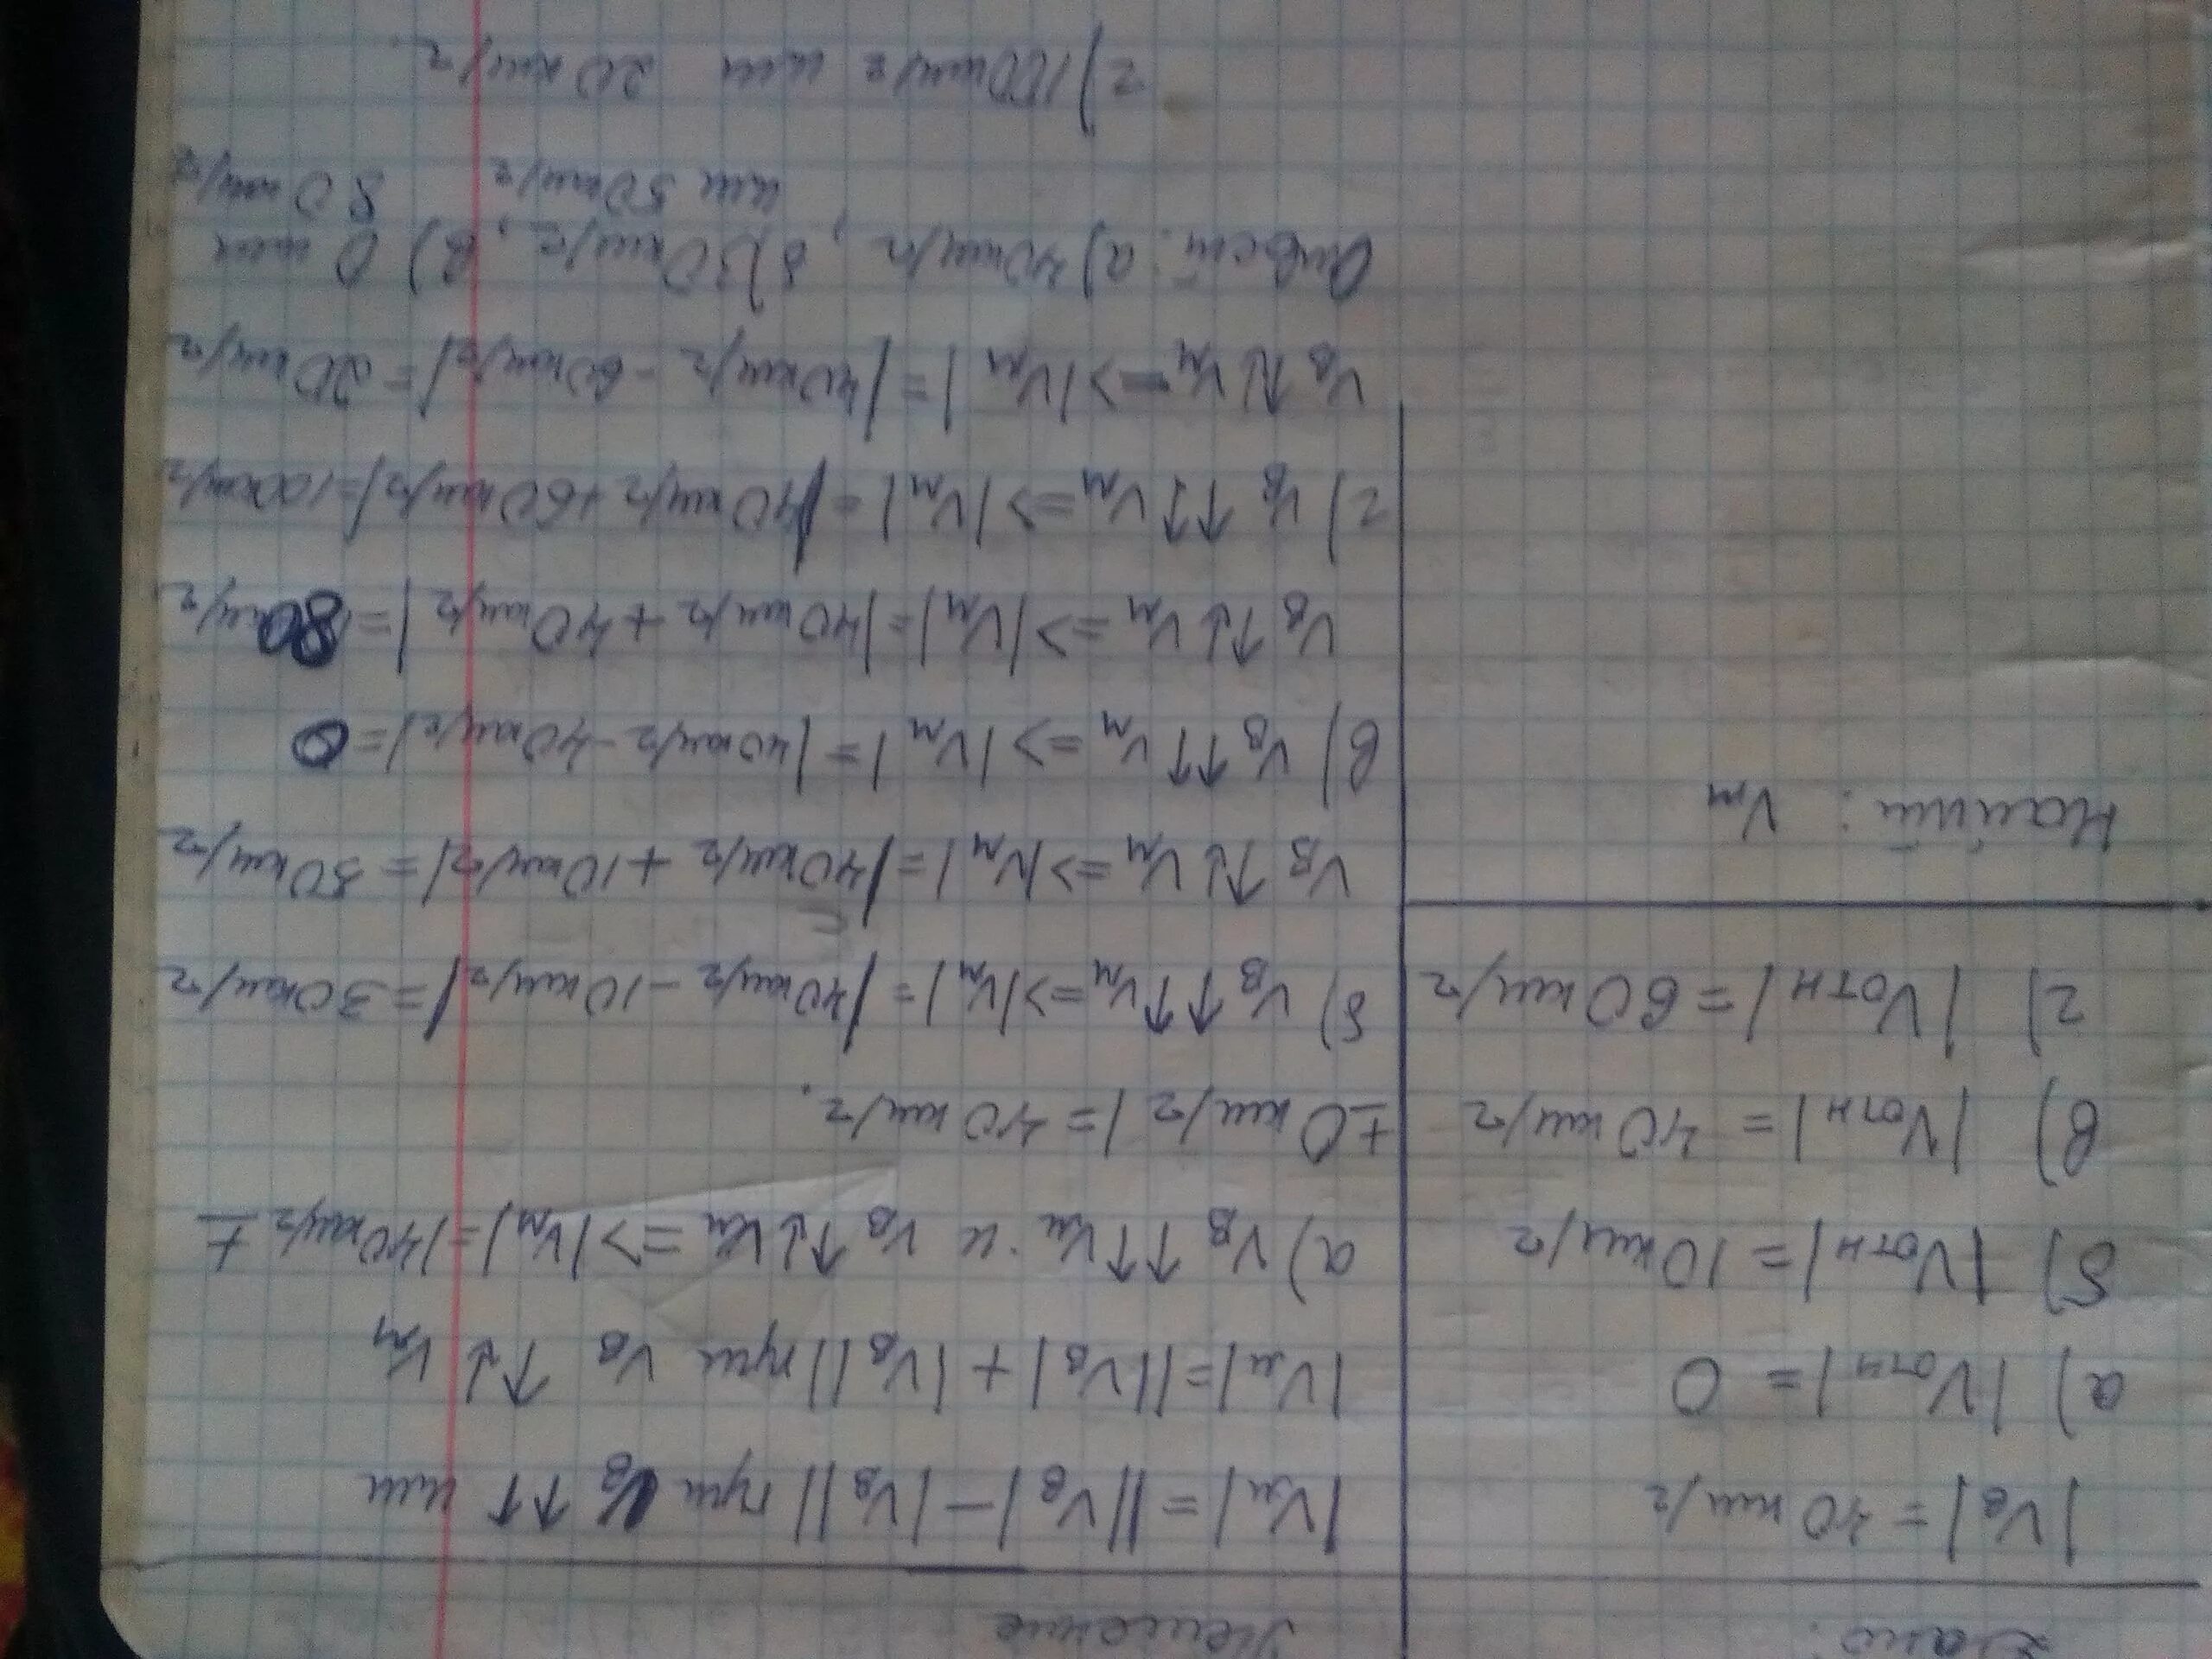 Дано:
|Vв| = 40 км/г
а) |Vотн| = 0
б) |Vотн| = 10 км/г
в) |Vотн| = 40 км/г
г) |Vотн| = 60 км/г
Найти: Vм
Решение
|Vм| = ||Vв| - |Vв|| при Vв ↑↑ или
|Vм| = ||Vв| + |Vв|| при Vв ↑↓ Vм
а) Vв ↑↑ Vм и Vв ↑↓ Vм => |Vм| = |40 км/г ±
± 0 км/г| = 40 км/г.
б) Vв ↑↑ Vм => |Vм| = |40 км/г - 10 км/г| = 30 км/г
Vв ↑↓ Vм => |Vм| = |40 км/г + 10 км/г| = 50 км/г
в) Vв ↑↑ Vм => |Vм| = |40 км/г - 40 км/г| = 0
Vв ↑↓ Vм => |Vм| = |40 км/г + 40 км/г| = 80 км/г
г) Vв ↑↑ Vм => |Vм| = |40 км/г + 60 км/г| = 100 км/г
Vв ↑↓ Vм => |Vм| = |40 км/г - 60 км/г| = 20 км/г
Ответ: а) 40 км/г, б) 30 км/г, в) 0 или
или 50 км/г 80 км/г
г) 100 км/г или 20 км/г.